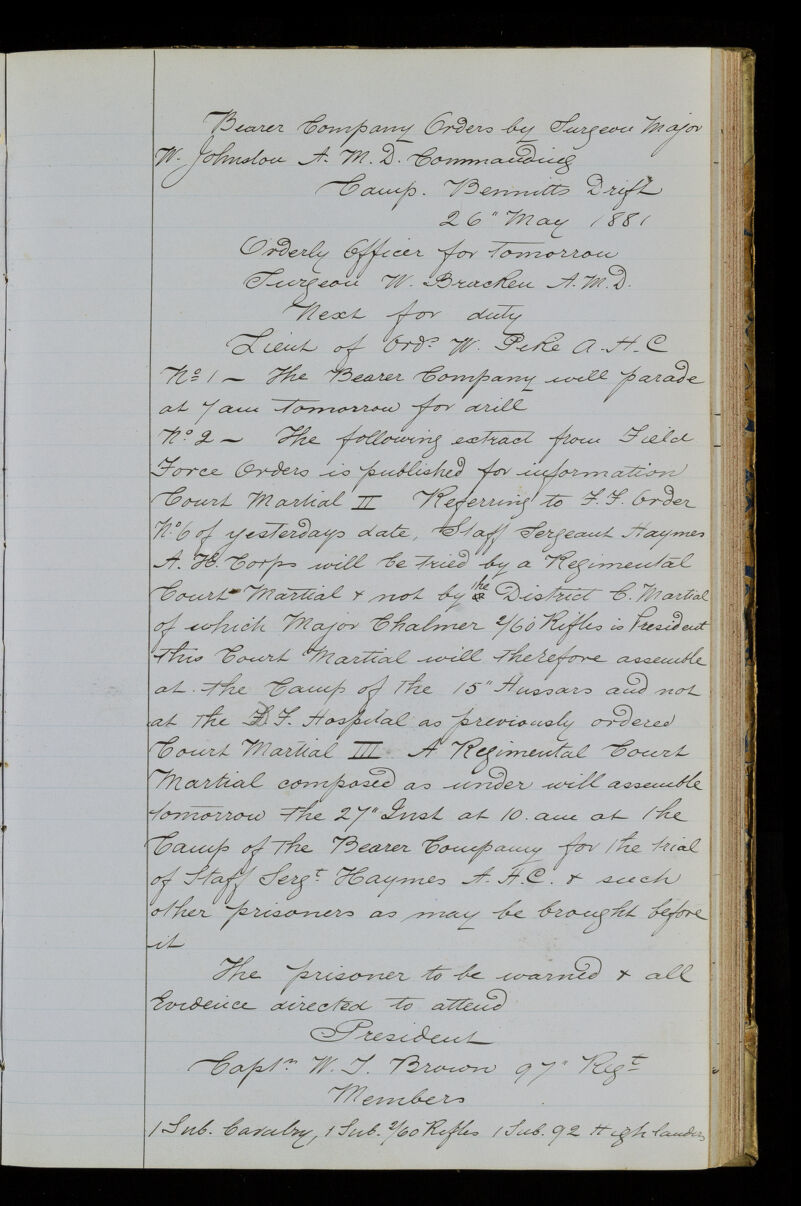 Bearer Company Orders by Surgeon Major
W. Johnston A. M. D. Commanding
Camp. Bennitts Drift
26" May 1881
Orderly Officer for tomorrow
Surgeon W. Bracken A. M. D.
Next for duty
Lieut of Ords W. Peke A. H. C
No 1 – The Bearer Company will parade
at 7 am tomorrow for drill
No 2 – The following extract from Field
Force Orders is published for information
Court Martial II Referring to F. F. Order
No 6 of yesterdays date, Staff Sergeant Haymes
A. H. Corps will be tried by a Regimental
Court Martial & not by the District C. Martial
of which Major Chalmer 2/60 Rifles is President
this Court Martial will therefore assemble
at the Camp of the 15" Hussars and not
at the F. F. Hospital as previously ordered
Court Martial III A Regimental Court
Martial composed as under will assemble
tomorrow the 27" Inst at 10. am at the
Camp of the Bearer Company for the trial
of Staff Sergt Haymes A. H. C. & such
other prisoners as may be brought before
it
The prisoner to be warned & all
Evidence directed to attend
President
Captn W. T. Brown 97" Regt
Members
1 Sub. Cavalry, 1 Sub. 2/60 Rifles 1 Sub. 92 Highlanders